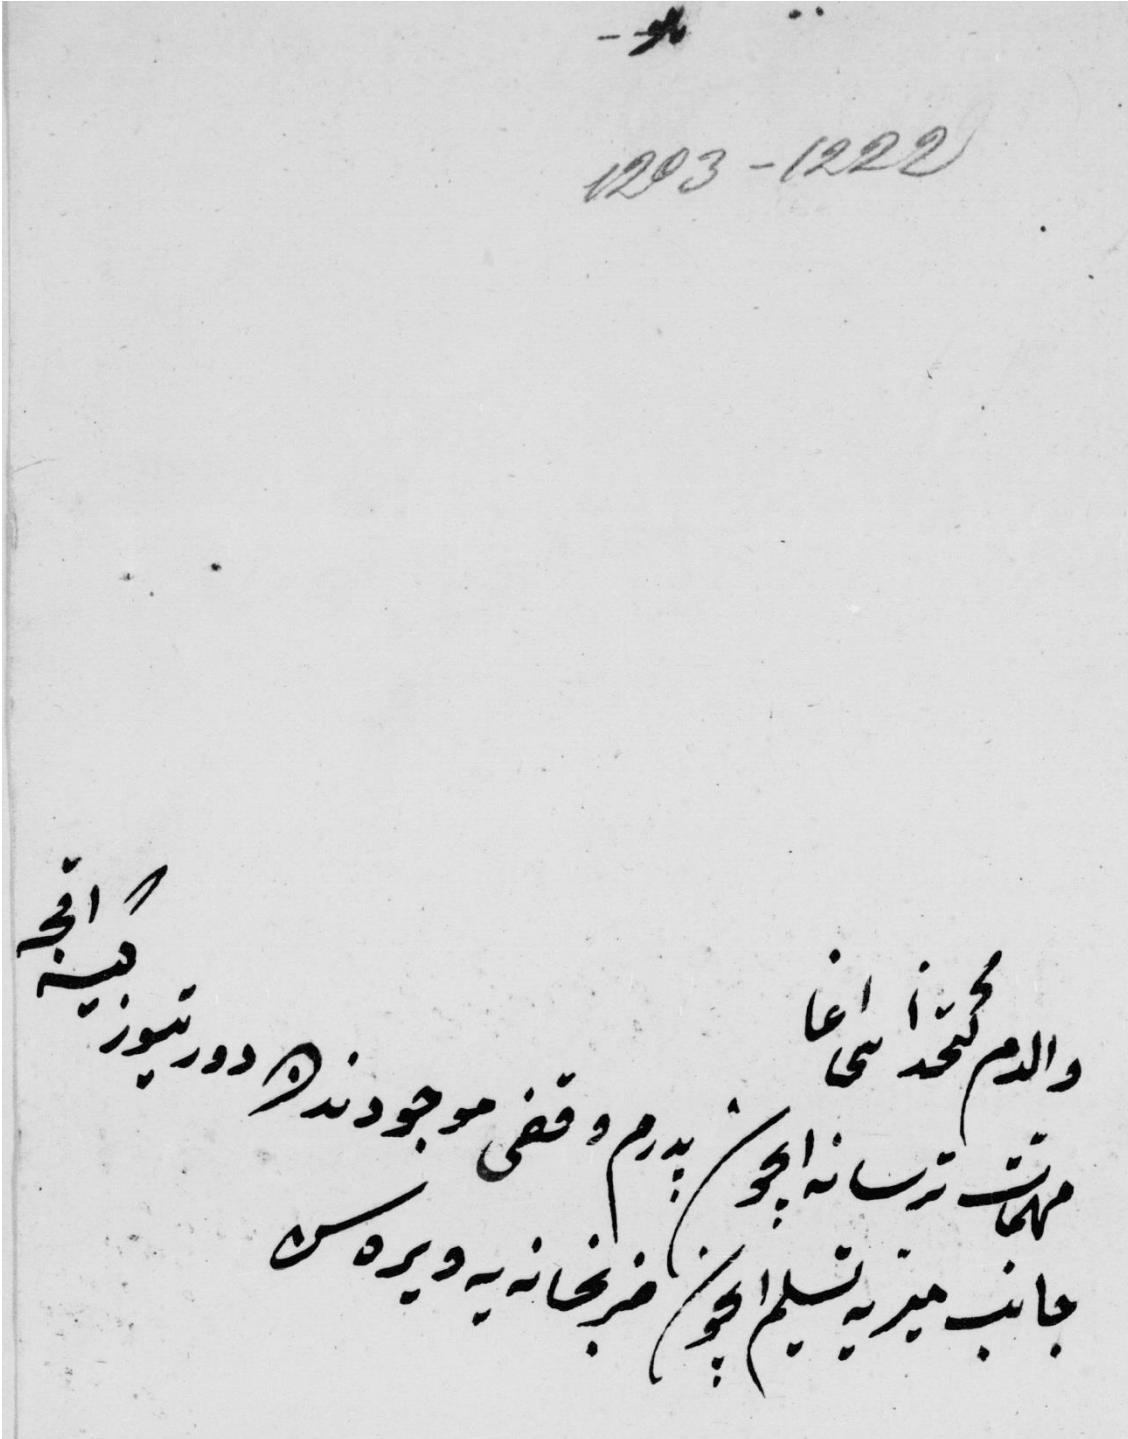 1293-1222
والدم كتخداسی اغا
مهمات ترسانه ایچون پدرم وقفی موجودندن دورتیوز كیسه اقچه
جانب میریه تسلیم ایچون ضربخانه یه ویره سن